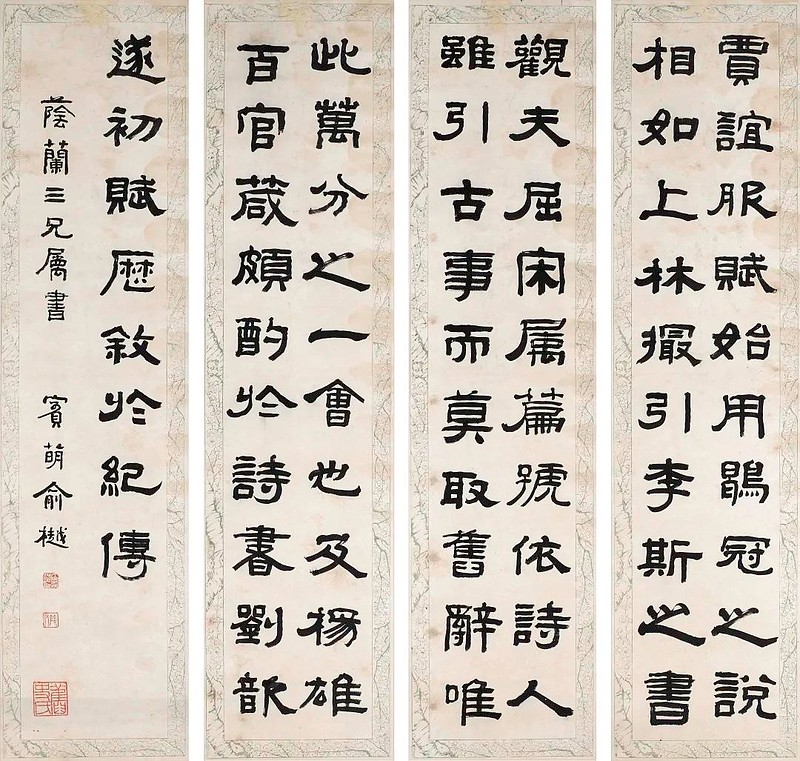 賈誼服賦始用鶡冠之說
相如上林撮引李斯之書
觀夫屈宋属篇號依詩人
雖引古事而莫取舊辭唯
此萬分之一會也及楊雄
百官葴頗酌於詩書劉歆
遂初賦歷敘於紀傳
蔭蘭三兄屬書 賓萌俞樾